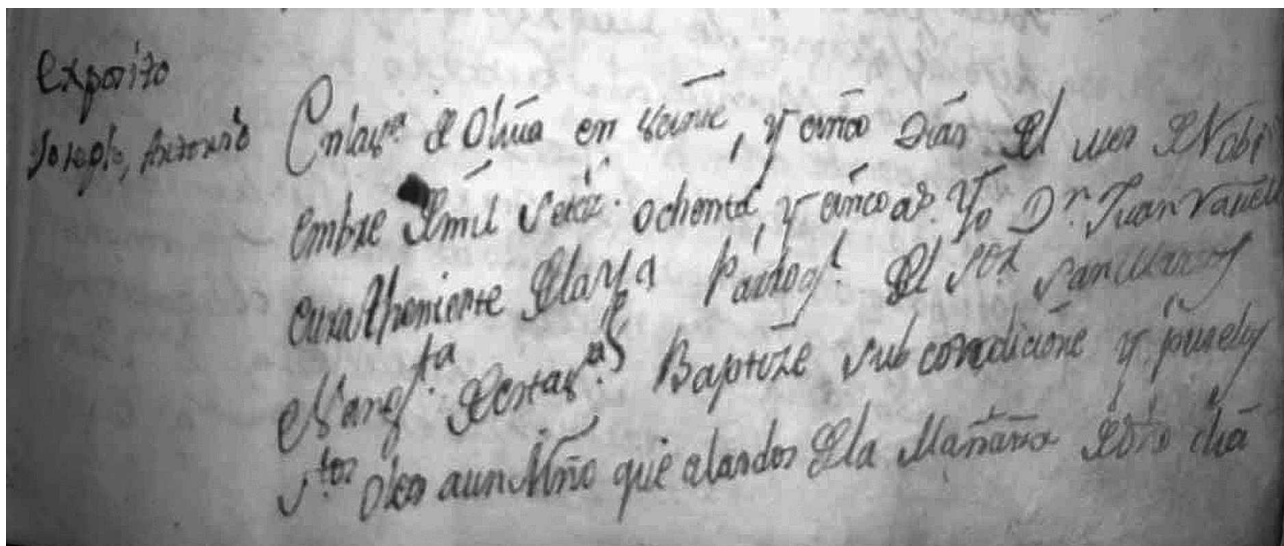 Exposito
Joseph, Antonio
En la Ciu.d de Oliva en veinte, y cinco Dias del mes de Nobi
embre de mil Setez.s ochenta, y cinco a.s Yo D.n Juan
cura theniente de la Parroq.l del S.or San Marcos
Evang.ta de esta Baptize sub condicione y puse los
S.tos oleos a un Niño que a las dos de la Mañana de dho dia